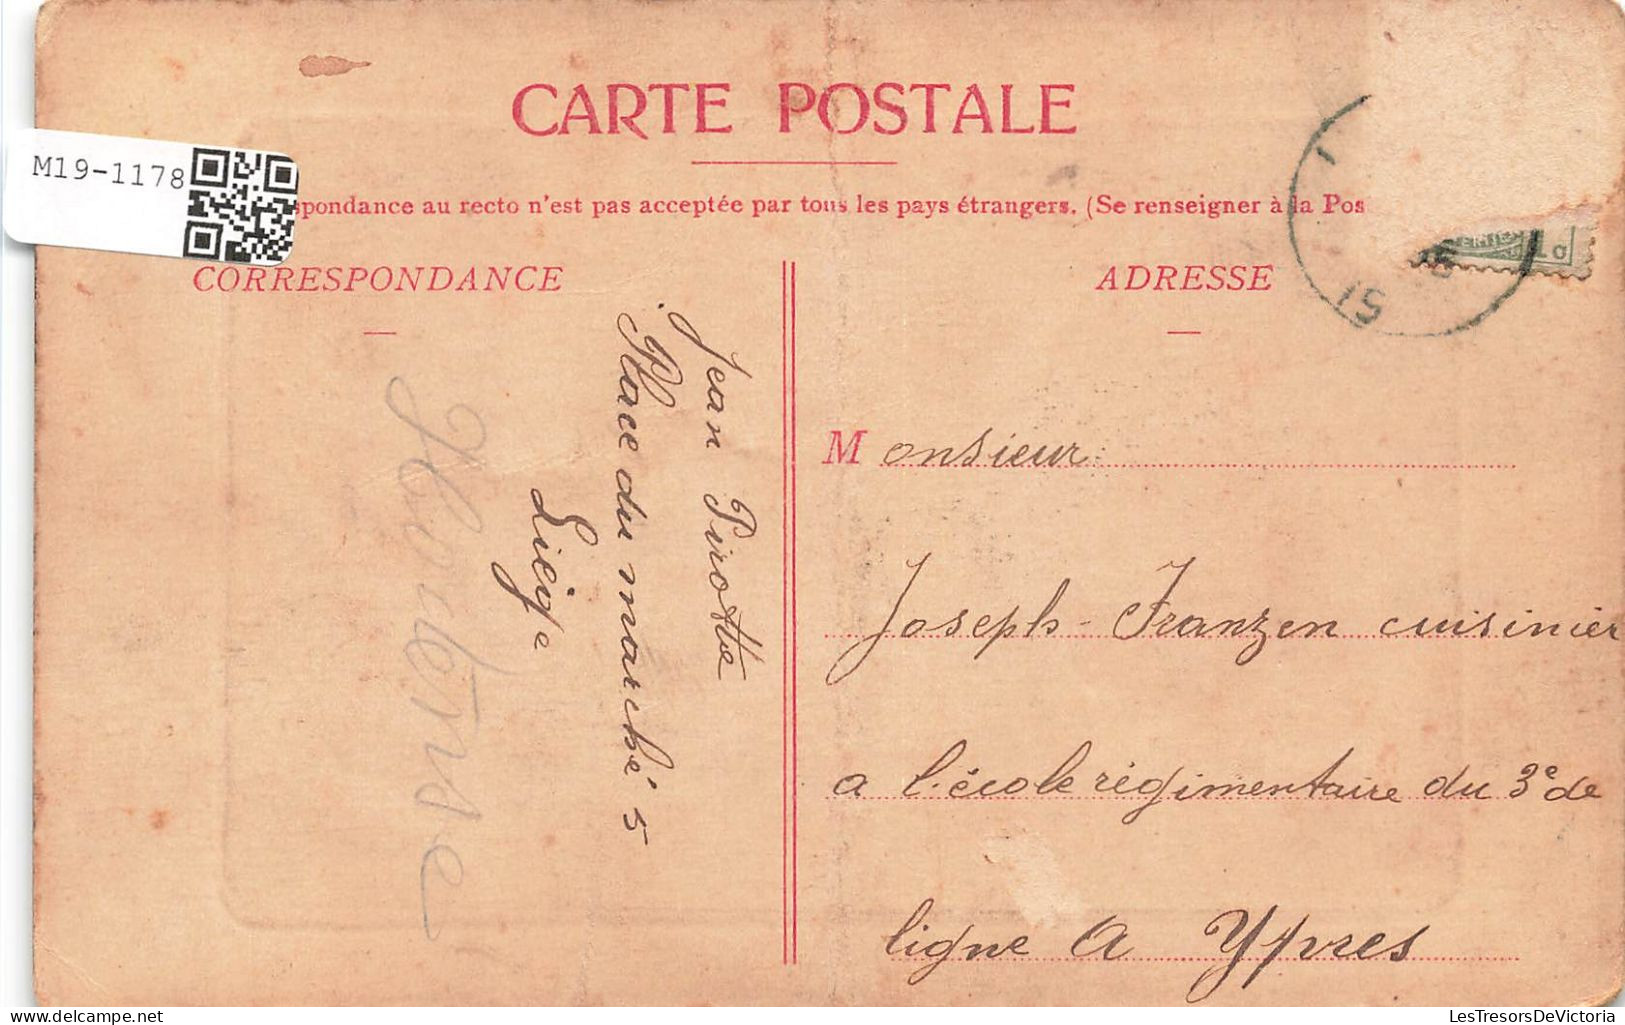 CARTE POSTALE
M19-1178
spondance au recto n'est pas acceptée par tous les pays étrangers. (Se renseigner à la Pos
CORRESPONDANCE
ADRESSE
15
Jean Pirotte
Place du marché 5
Liège
Monsieur
Joseph Franzen cuisinier
a l'école régimentaire du 3e de
ligne a Ypres
delcampe.net
LesTresorsDeVictoria